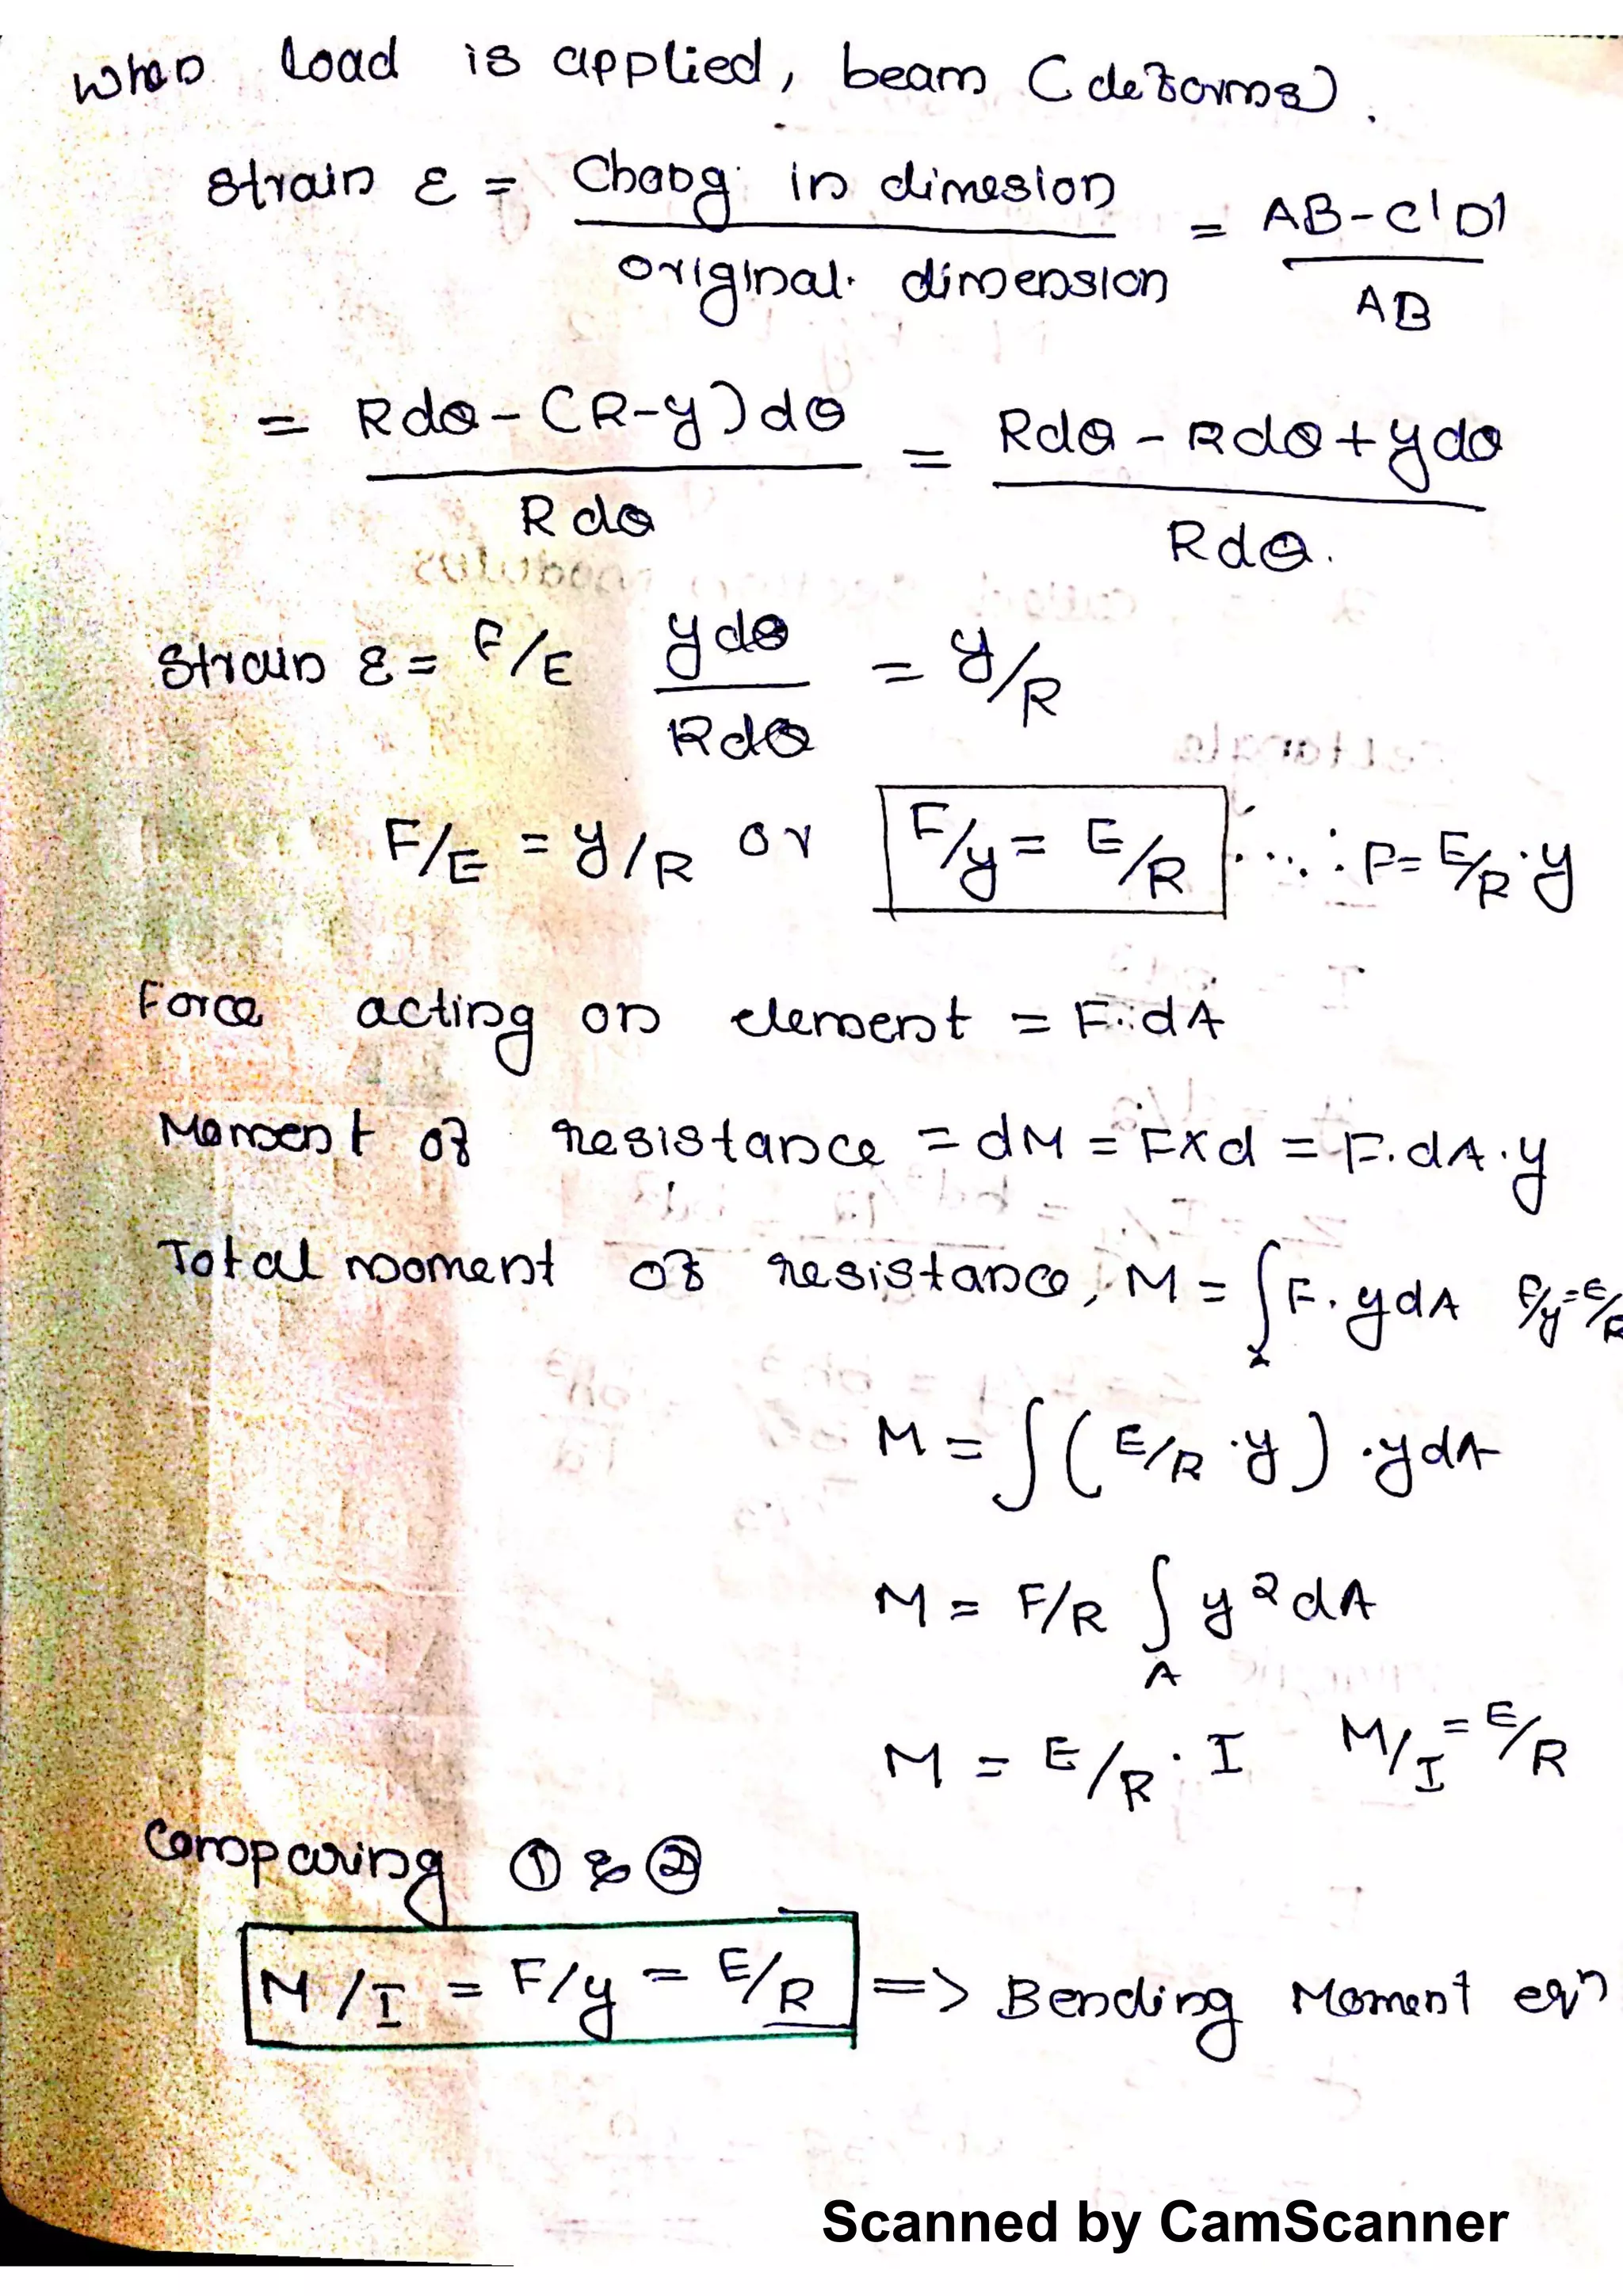 when load is applied, beam (deforms).
Strain ε = Chang in dimesion / original dimension = AB - C'D' / AB
= Rdθ - (R-y)dθ / Rdθ = Rdθ - Rdθ + ydθ / Rdθ.
Strain ε = F/E ydθ / Rdθ = y/R
F/E = y/R or F/y = E/R ..... ∴ F = E/R · y
Force acting on element = F·dA
Moment of resistance = dM = F x d = F.dA.y
Total moment of resistance, M = ∫ F. ydA F/y = E/R
M = ∫ ( E/R · y ) · ydA
M = F/R ∫A y²dA
M = E/R · I M/I = E/R
Comparing ① & ②
M/I = F/y = E/R => Bending Moment eqn
Scanned by CamScanner